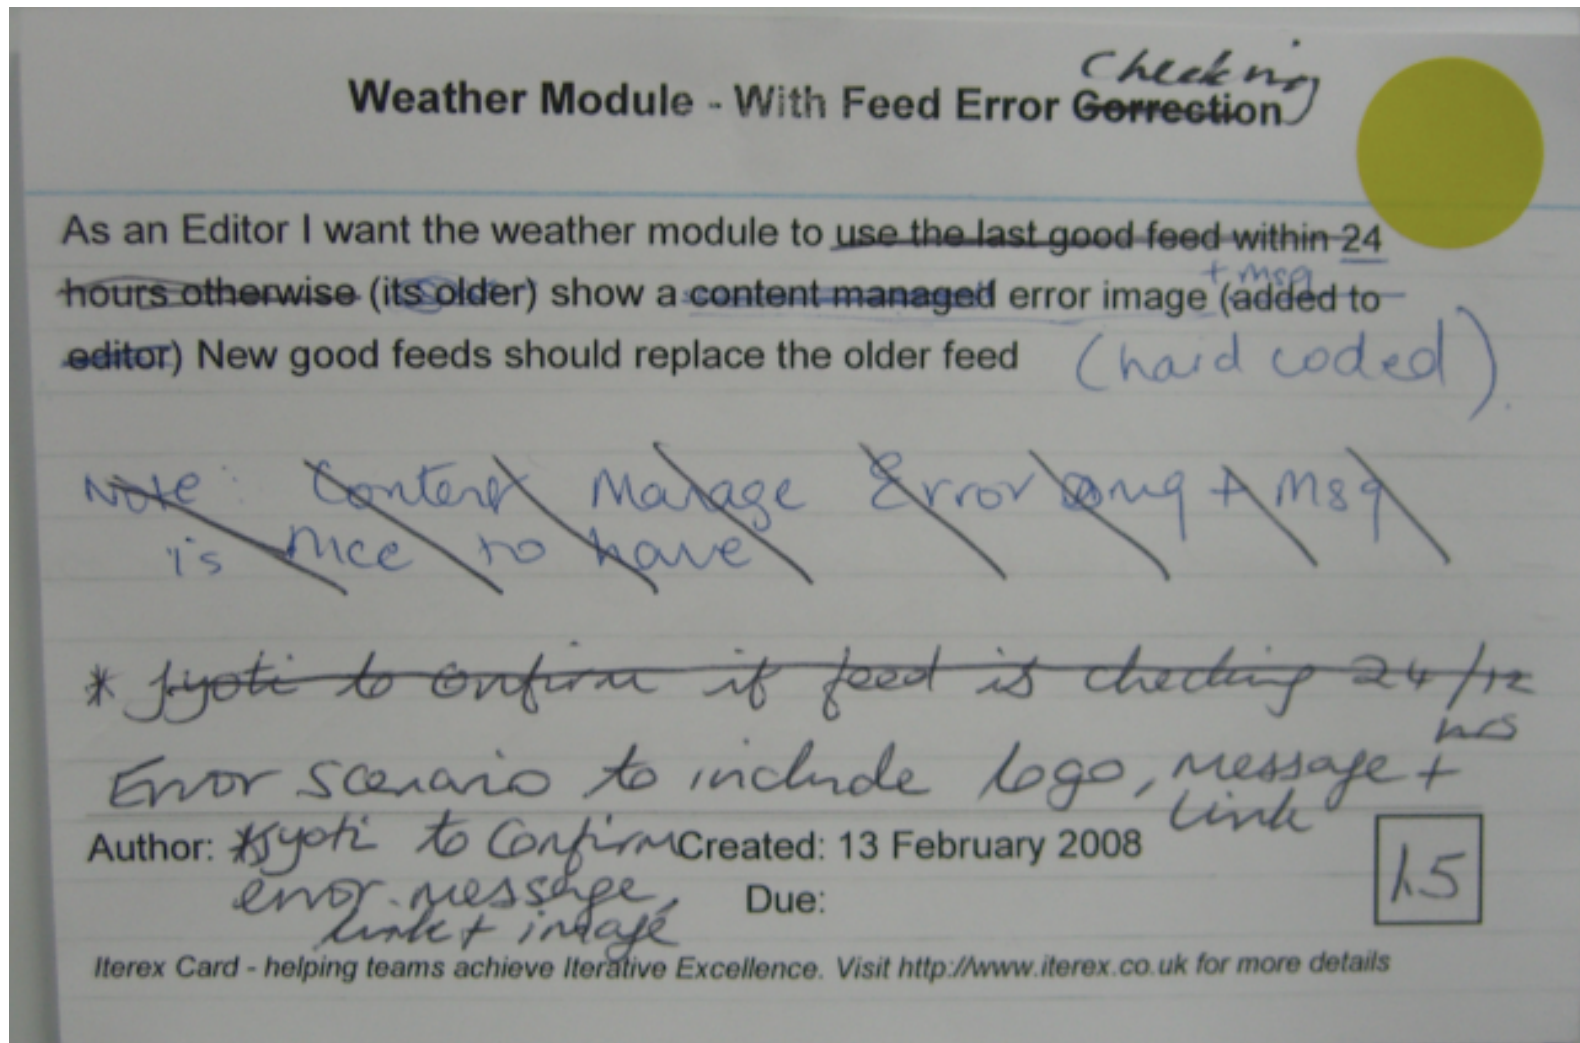 Checking
Weather Module - With Feed Error Correction
As an Editor I want the weather module to use the last good feed within 24
+ msg
hours otherwise (its older) show a content managed error image (added to
editor) New good feeds should replace the older feed (hard coded).
Note: Content Manage Error img + Msg
is nice to have
* Jyoti to confirm if feed is checking 24/12
hrs
Error scenario to include logo, message +
link
Author: *Jyoti to Confirm Created: 13 February 2008
error message, Due:
link + image
1.5
Iterex Card - helping teams achieve Iterative Excellence. Visit http://www.iterex.co.uk for more details